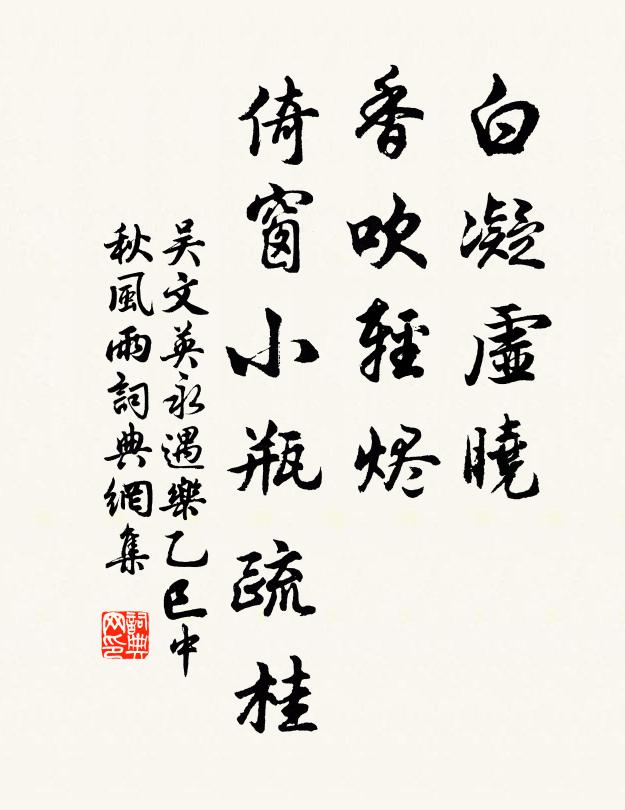 白凝虛曉
香吹輕烬
倚窗小瓶疏桂
吴文英永遇樂乙巳中
秋風雨詞典網集
詞典网印